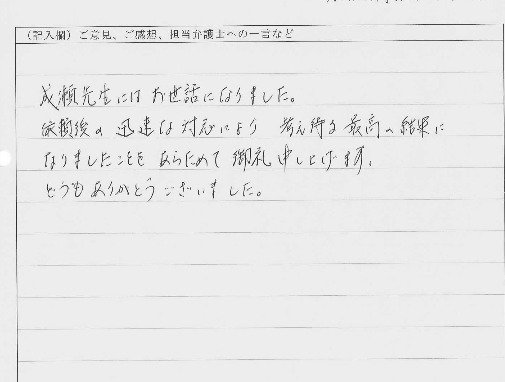 (記入欄)ご意見、ご感想、担当弁護士への一言など
成瀬先生には お世話になりました。
依頼後の 迅速な対応により 考え得る 最高の結果に
なりましたことを あらためて 御礼 申し上げます。
どうもありがとうございました。